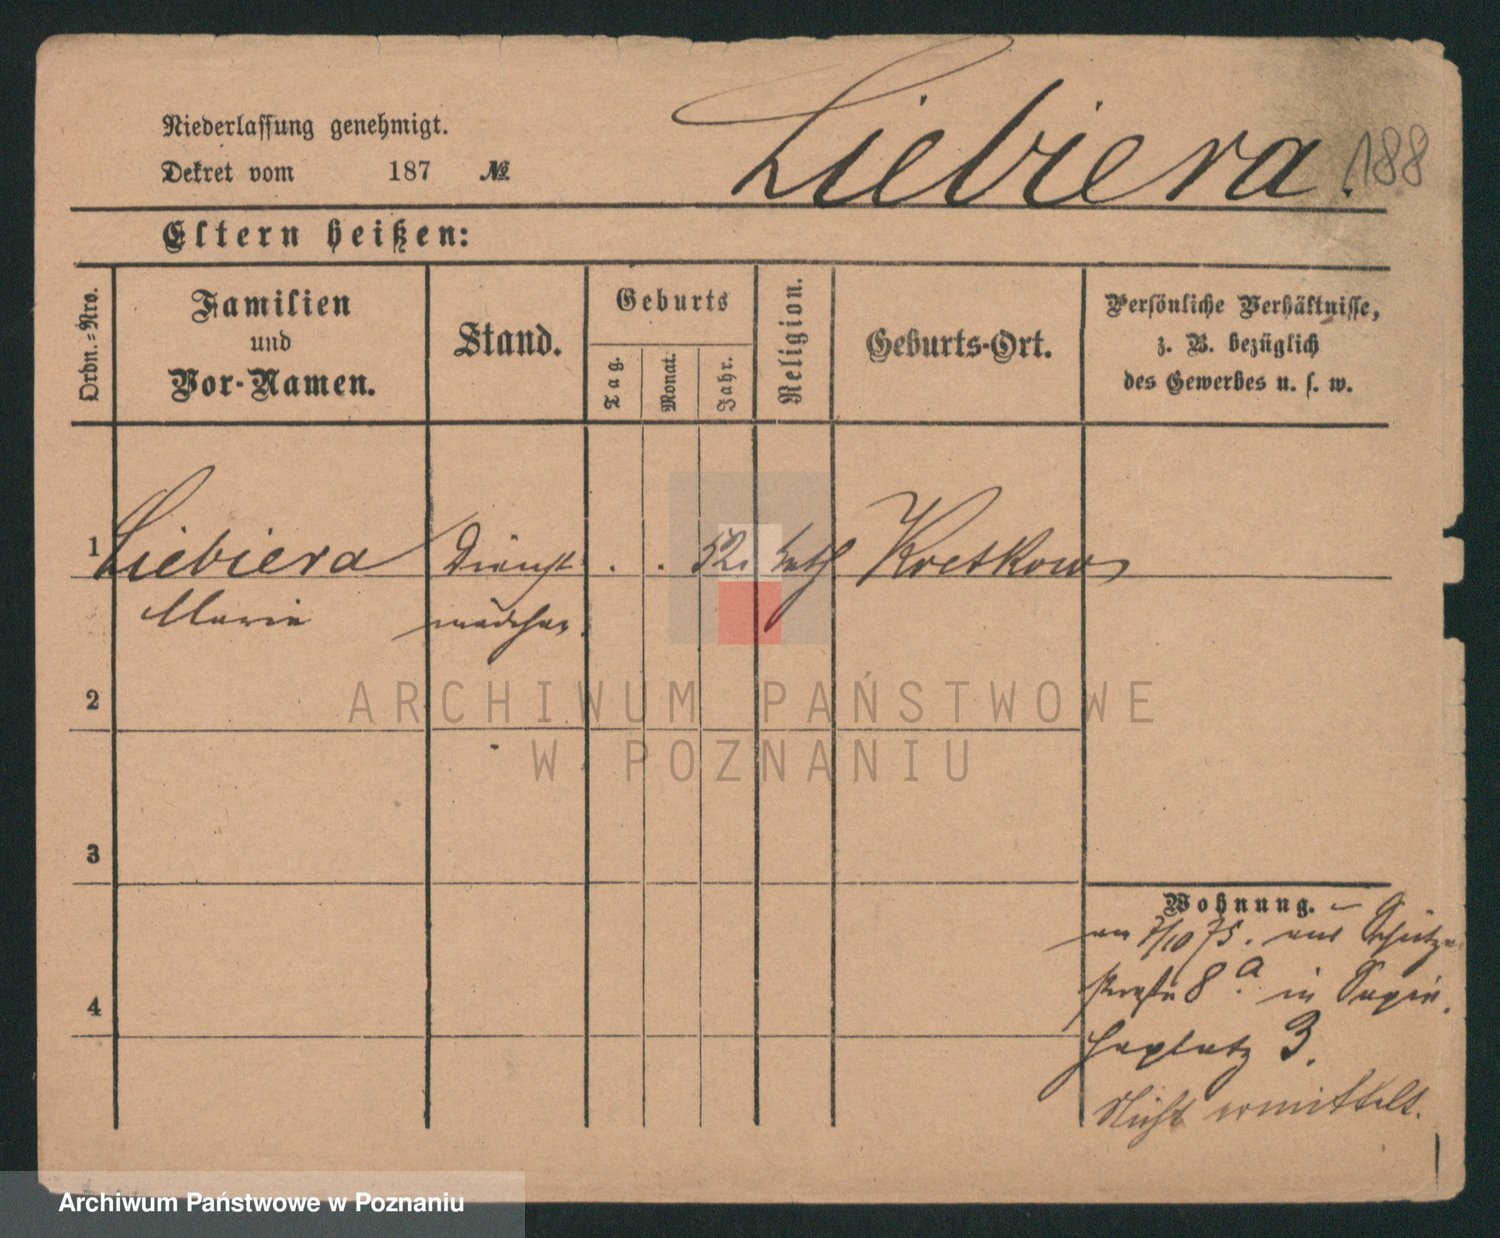 Liebiera. 188
Niederlassung genehmigt.
Dekret vom 187 №
Eltern heißen:
Ordn.=Nro.
Familien
und
Vor-Namen.
Stand.
Geburts
Tag.
Monat.
Jahr.
Religion.
Geburts-Ort.
Persönliche Verhältnisse,
z. B. bezüglich
des Gewerbes u. s. w.
1 Liebiera Dienst . . 52. kath Kretkow
Marie mädchen.
2
3
4
Wohnung. –
am 7/10 75. aus Schützen
straße 8a. in Sapie
haplatz 3.
Nicht ermittelt.
ARCHIWUM PAŃSTWOWE
W POZNANIU
Archiwum Państwowe w Poznaniu